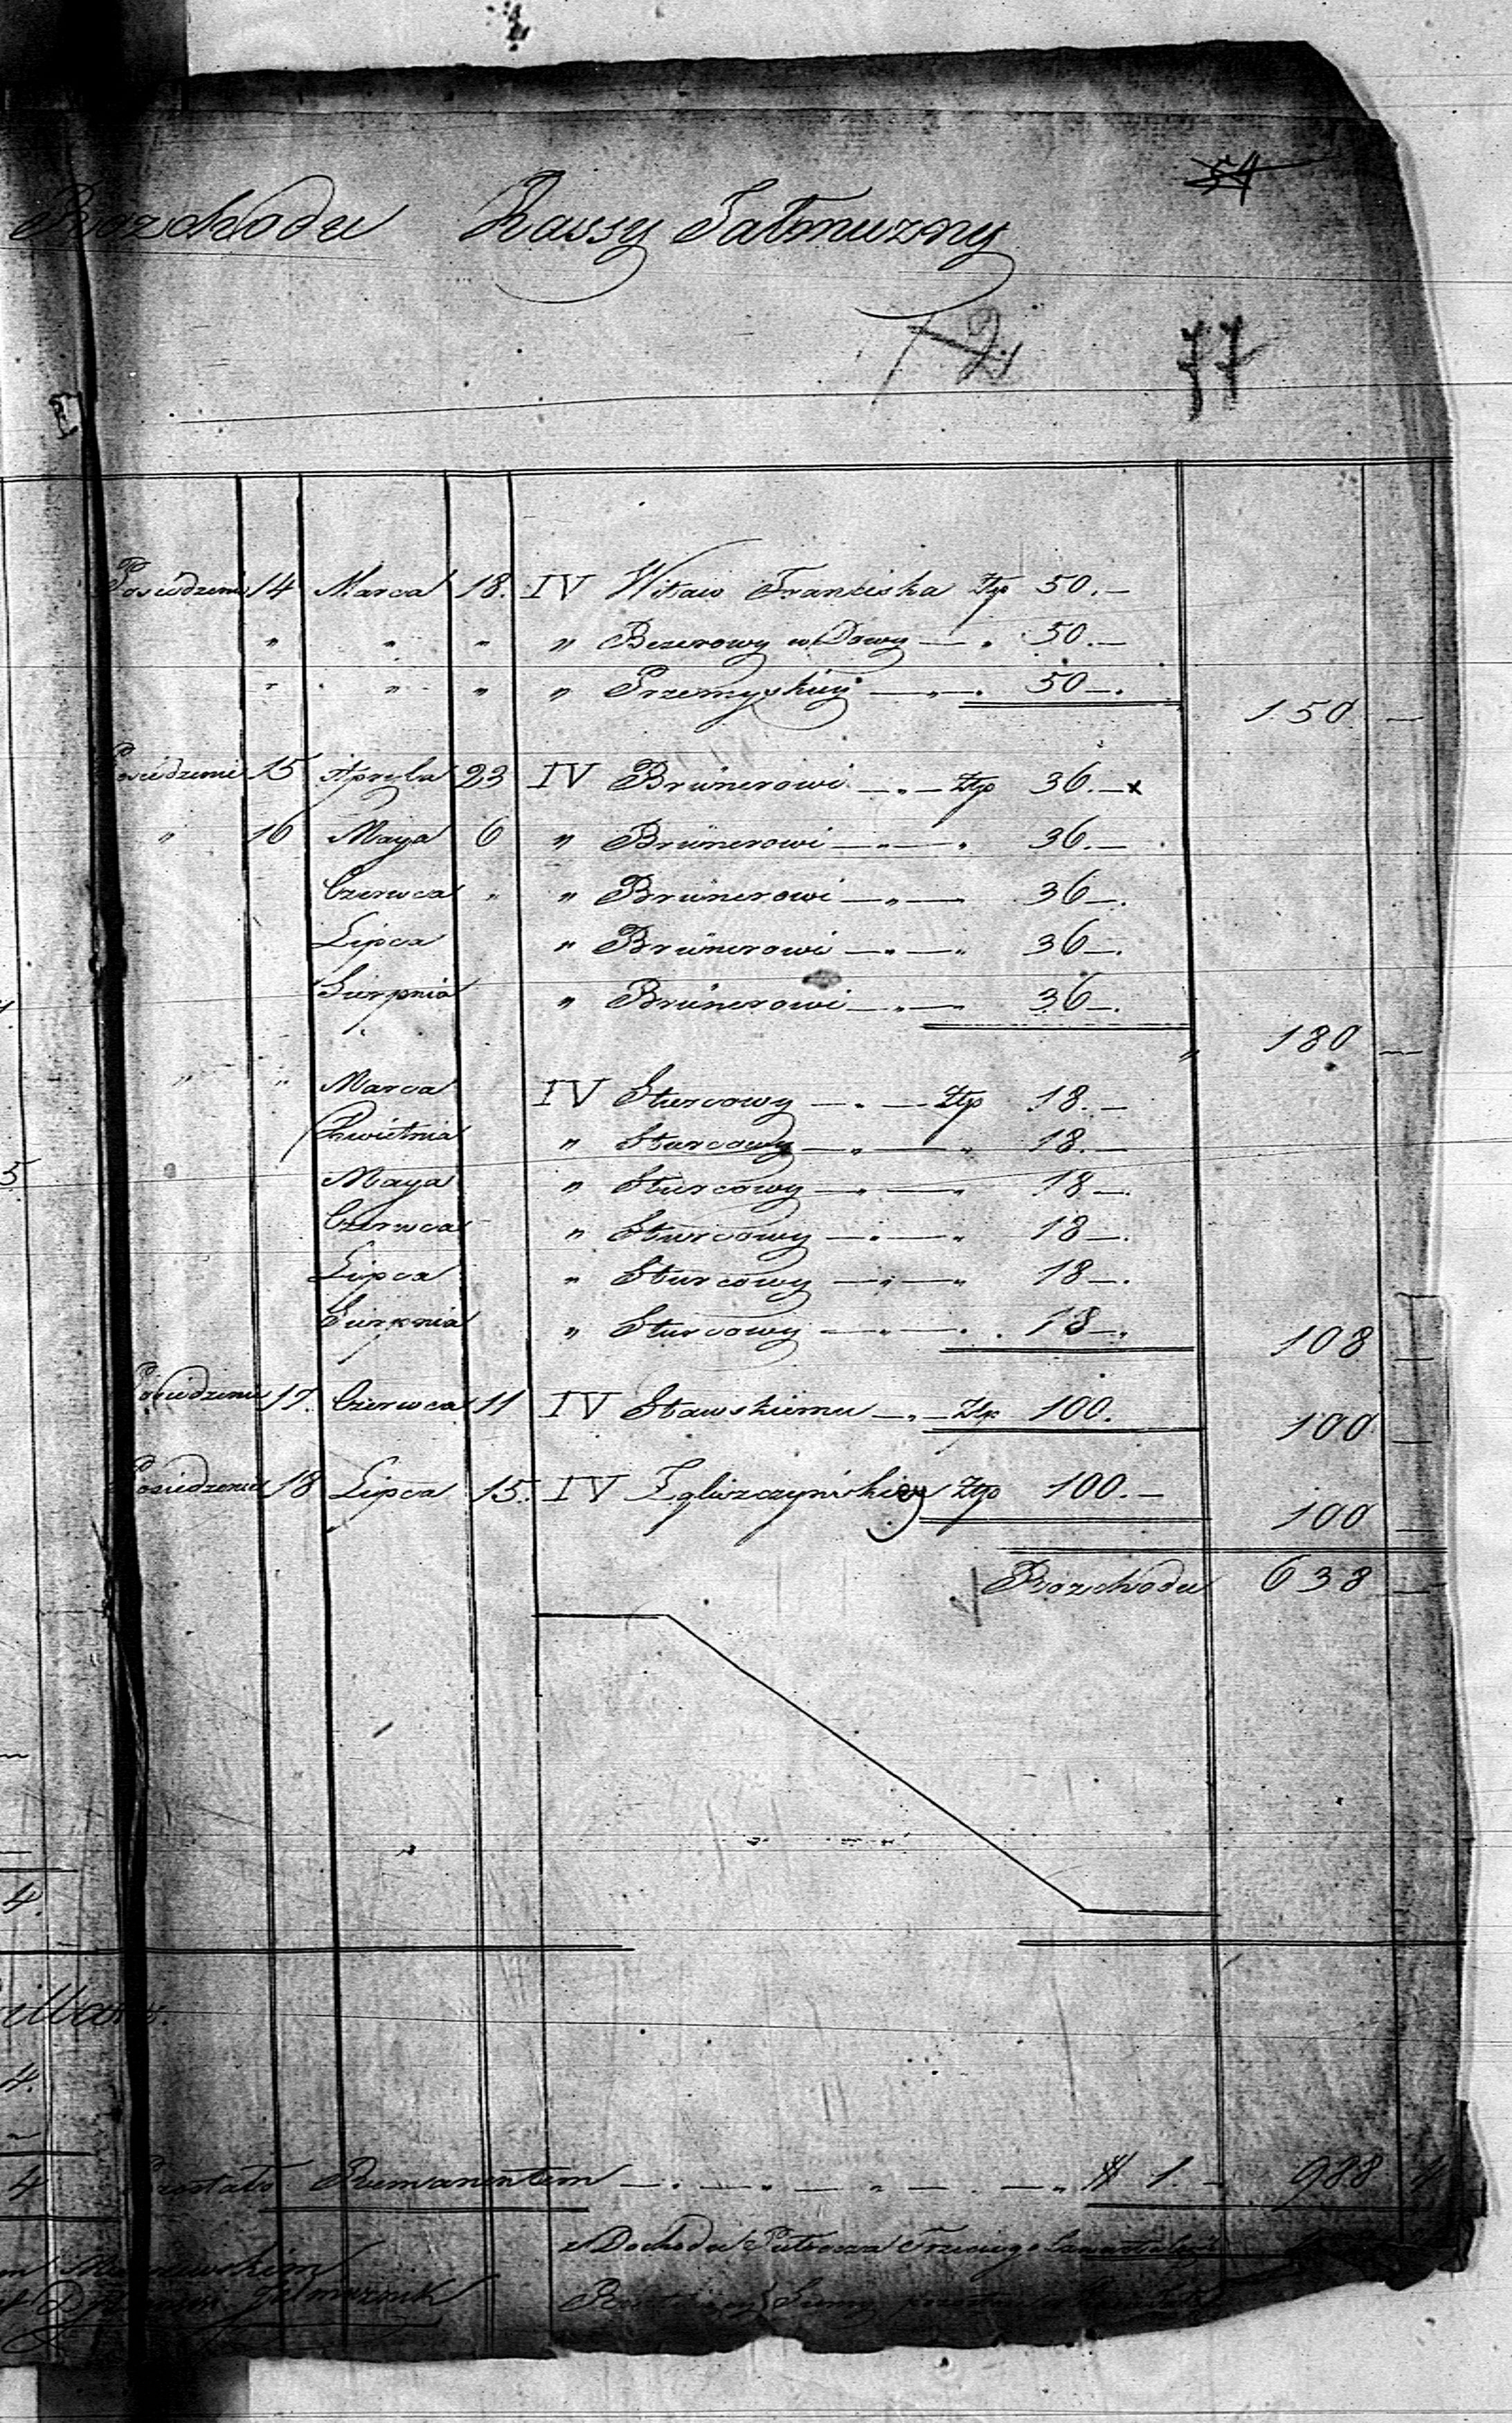 54
Rozchodu Kassy Jałmużny
72 77
Posiedzenie 14 Marca 18. IV Witaw Franciska Złp 50. —
" " " " Bezerowy wDowy — " 50. —
" " " " Przemyskiey — " — . 50 — .
150 —
Posiedzenie 15 Apryla 23 IV Brünerowi — " — Złp 36. — x
" 16 Maya 6 " Brünerowi — " — " 36. —
Czerwca " " Brünerowi — " — 36 — .
Lipca " Brünerowi — " — " 36 — .
Sierpnia " Brünerowi — " — " 36 — .
" 180 —
" " Marca IV Sturcowy — " — Złp 18. —
Kwietnia " Sturcowy — " — " 18. —
Maya " Sturcowy — " — " 18 — .
Czerwca " Sturcowy — " — " 18 — .
Lipca " Sturcowy — " — " 18 — .
Sierpnia " Sturcowy — " — . 18 — "
108 —
Posiedzenie 17. Czerwca 11 IV Stawskiemu — " — Złp 100.
100 —
Posiedzenie 18 Lipca 15. IV Zgliszczyńskiey Złp 100. —
100 —
Rozchodu 638 —
4.
4.
4 Remanentem — . — " — " — . — " # 1. — 988 4
z Dochodu Trzeciego
Summy